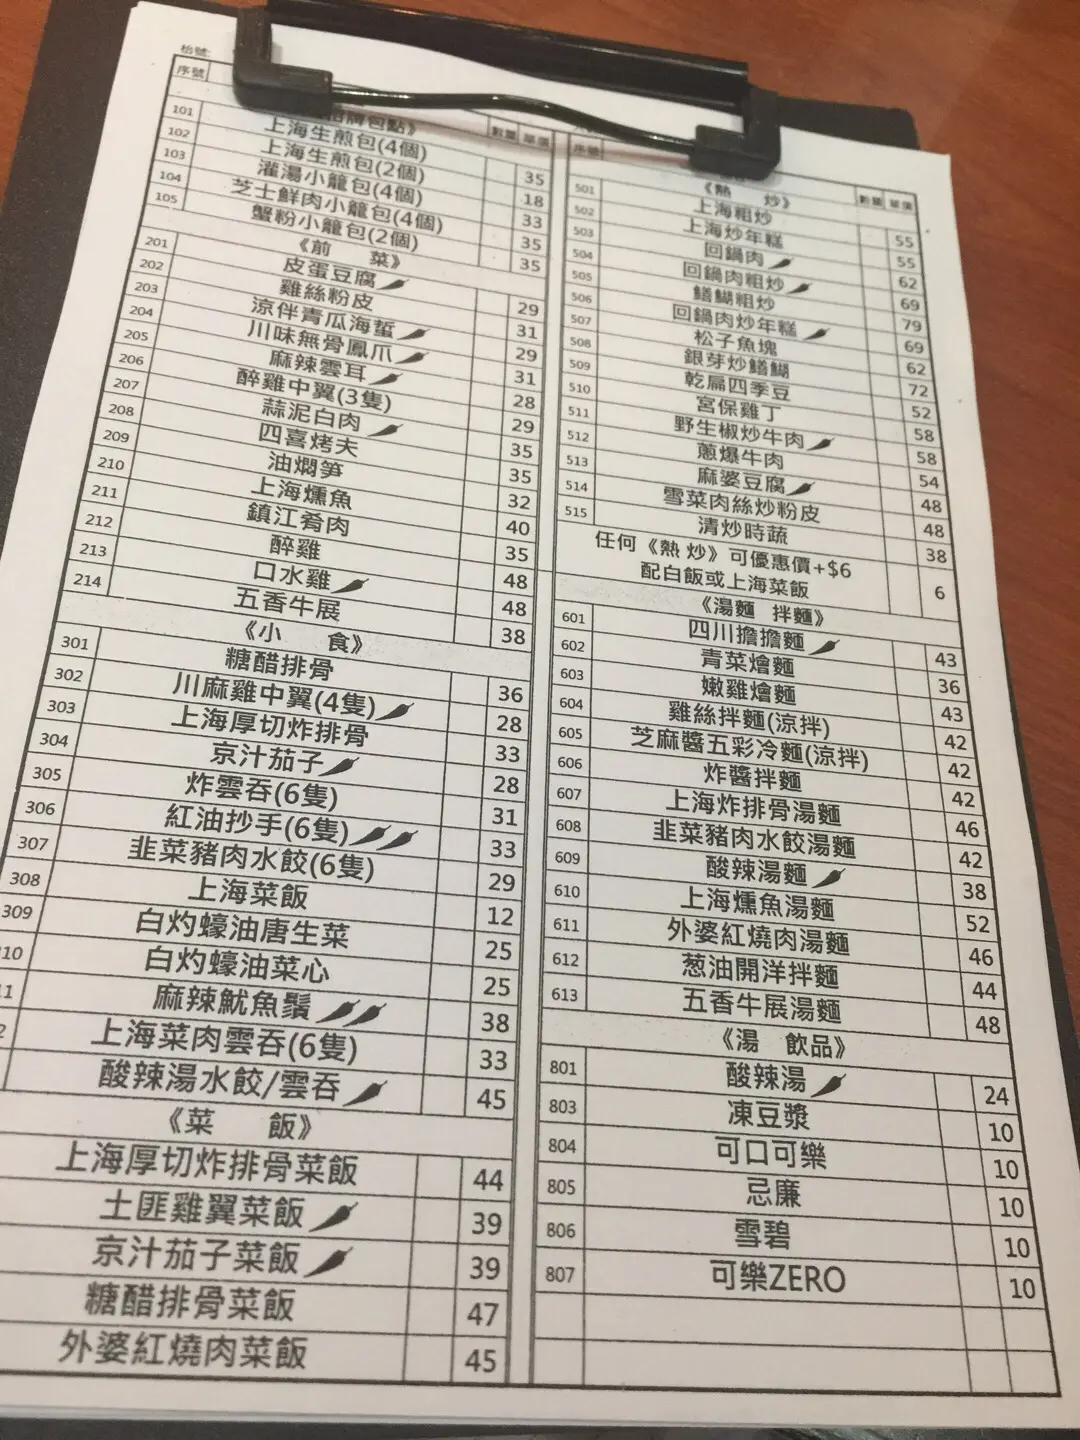 枱號:
序號 數量 單價
招牌包點》
101 上海生煎包(4個) 35
102 上海生煎包(2個) 18
103 灌湯小籠包(4個) 33
104 芝士鮮肉小籠包(4個) 35
105 蟹粉小籠包(2個) 35
《前 菜》
201 皮蛋豆腐 29
202 雞絲粉皮 31
203 涼伴青瓜海蜇 29
204 川味無骨鳳爪 31
205 麻辣雲耳 28
206 醉雞中翼(3隻) 29
207 蒜泥白肉 35
208 四喜烤夫 35
209 油燜笋 32
210 上海燻魚 40
211 鎮江肴肉 35
212 醉雞 48
213 口水雞 48
214 五香牛展 38
《小 食》
301 糖醋排骨 36
302 川麻雞中翼(4隻) 28
303 上海厚切炸排骨 33
304 京汁茄子 28
305 炸雲吞(6隻) 31
306 紅油抄手(6隻) 33
307 韭菜豬肉水餃(6隻) 29
308 上海菜飯 12
309 白灼蠔油唐生菜 25
10 白灼蠔油菜心 25
11 麻辣魷魚鬚 38
2 上海菜肉雲吞(6隻) 33
酸辣湯水餃/雲吞 45
《菜 飯》
上海厚切炸排骨菜飯 44
土匪雞翼菜飯 39
京汁茄子菜飯 39
糖醋排骨菜飯 47
外婆紅燒肉菜飯 45
序號 數量 單價
《熱 炒》
501 上海粗炒 55
502 上海炒年糕 55
503 回鍋肉 62
504 回鍋肉粗炒 69
505 鱔鰗粗炒 79
506 回鍋肉炒年糕 69
507 松子魚塊 62
508 銀芽炒鱔鰗 72
509 乾扁四季豆 52
510 宮保雞丁 58
511 野生椒炒牛肉 58
512 蔥爆牛肉 54
513 麻婆豆腐 48
514 雪菜肉絲炒粉皮 48
515 清炒時蔬 38
任何《熱 炒》可優惠價+$6
配白飯或上海菜飯 6
《湯麵 拌麵》
601 四川擔擔麵 43
602 青菜燴麵 36
603 嫩雞燴麵 43
604 雞絲拌麵(涼拌) 42
605 芝麻醬五彩冷麵(涼拌) 42
606 炸醬拌麵 42
607 上海炸排骨湯麵 46
608 韭菜豬肉水餃湯麵 42
609 酸辣湯麵 38
610 上海燻魚湯麵 52
611 外婆紅燒肉湯麵 46
612 葱油開洋拌麵 44
613 五香牛展湯麵 48
《湯 飲品》
801 酸辣湯 24
803 凍豆漿 10
804 可口可樂 10
805 忌廉 10
806 雪碧 10
807 可樂ZERO 10